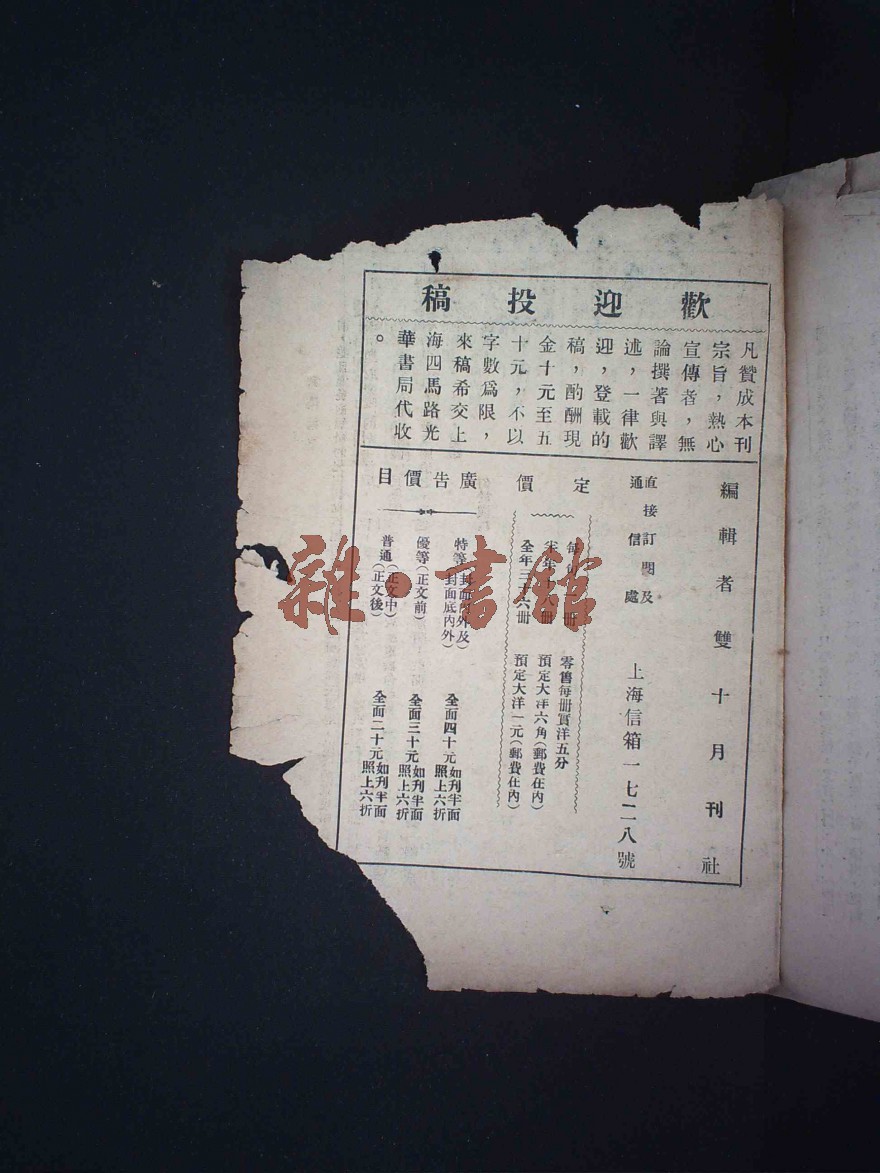 歡迎投稿
凡贊成本刊
宗旨，熱心
宣傳者，無
論撰著與譯
述，一律歡
迎，登載的
稿，酌酬現
金十元至五
十元，不以
字數爲限，
來稿希交上
海四馬路光
華書局代收
。
編輯者 雙十月刊社
直接訂閱及
通信處
上海信箱一七二八號
定價
每 冊 零售每冊實洋五分
半年十八冊 預定大洋六角（郵費在內）
全年三十六冊 預定大洋一元（郵費在內）
廣告價目
特等（封面內外及封面底內外） 全面四十元 如刋半面照上六折
優等（正文前） 全面三十元 如刋半面照上六折
普通（正文中）（正文後） 全面二十元 如刋半面照上六折
雜·書館